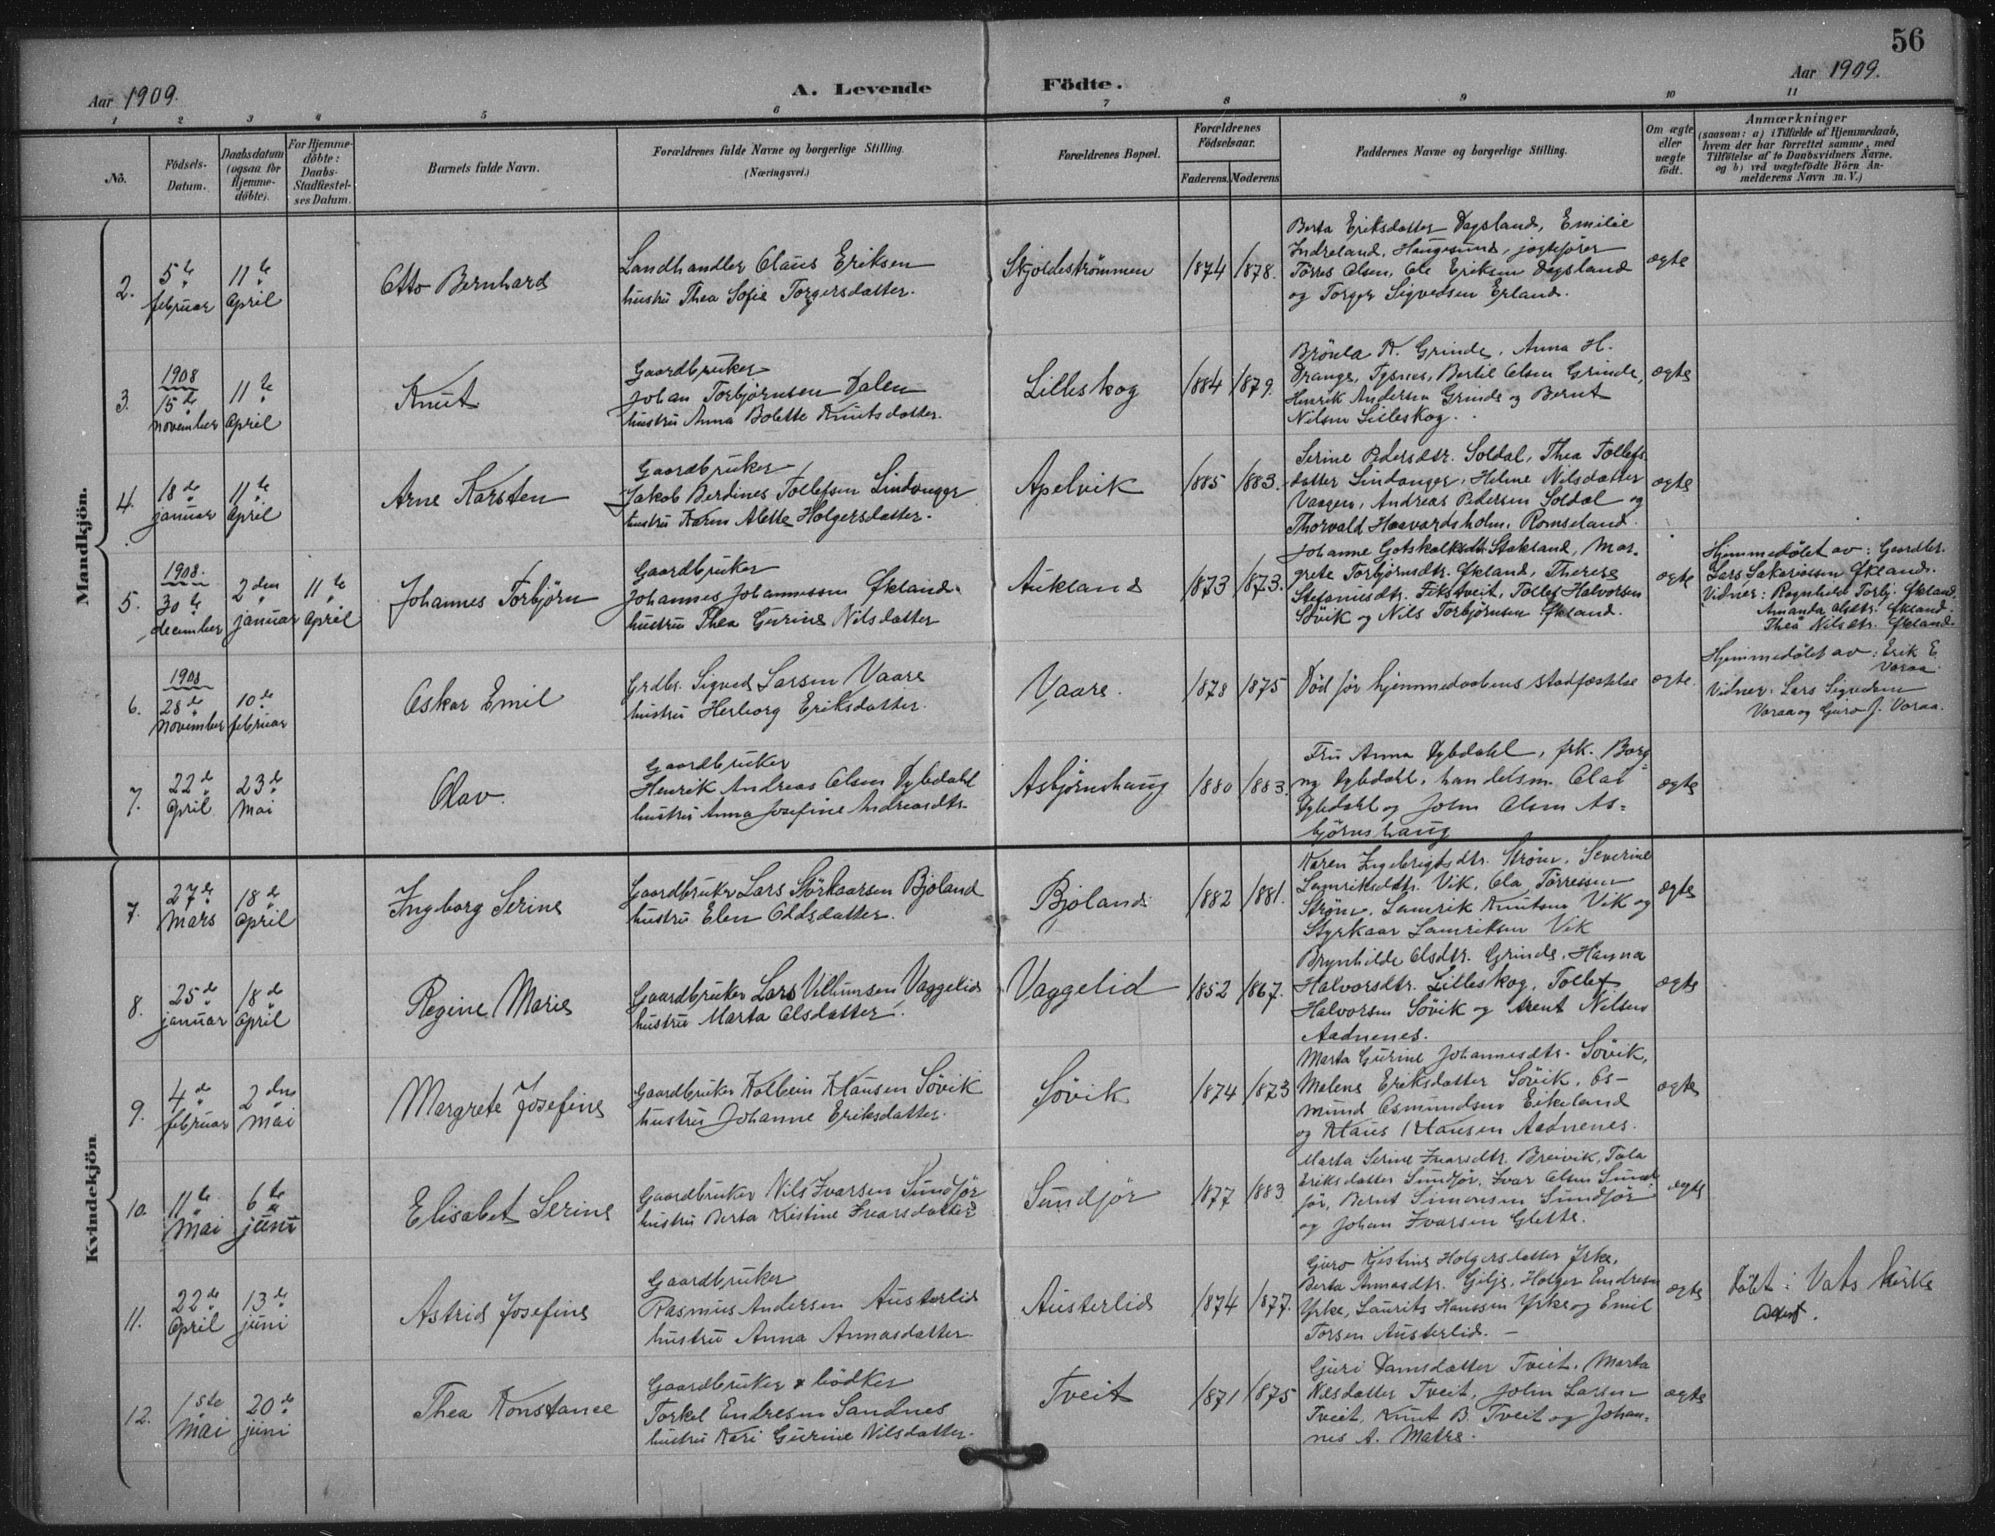 56
Aar 1909.
A. Levende Födte.
Aar 1909.
1 2 3 4 5 6 7 8 9 10 11
No.
Födsels-
Datum.
Daabsdatum
(ogsaa for
Hjemme-
döbte).
For Hjemme-
döbte:
Daabs-
Stadfæstel-
ses Datum.
Barnets fulde Navn.
Forældrenes fulde Navne og borgerlige Stilling.
(Næringsvei.)
Forældrenes Bopæl.
Forældrenes
Födselsaar.
Faderens. Moderens
Faddernes Navne og borgerlige Stilling.
Om ægte
eller
uægte
födt.
Anmærkninger
(saasom: a) i Tilfælde af Hjemmedaab,
hvem der har forrettet samme, med
Tilföielse af to Daabsvidners Navne,
og b) ved uægtefödte Börn An-
melderens Navn m. V.)
Mandkjön.
2.
5te
februar
11te
april
Otto Bernhard
Landhandler Claus Eriksen
hustru Thea Sofie Torgersdatter.
Skjoldestrømmen
1874 1878.
Berta Eriksdatter Dagsland, Emilie
Indreland, Haugesund, jægtefører
Tørres Olsen, Ole Eriksen Dagsland
og Torger Sigvedsen Erland.
ægte
3.
1908
15de
november
11te
april
Knut
Gaardbruker
Johan Torbjørnsen Dalen
hustru Anna Bolette Knutsdatter.
Lilleskog
1884 1879.
K. Grinde, Anna H.
Drange, Tysnes, Bertil Olsen Grinde,
Henrik Andersen Grinde og Bernt
Nilsen Lilleskog.
ægte
4.
18de
januar
11te
april
Arne Karsten
Gaardbruker
Jakob Berdines Tollefsen Lindanger
hustru Karen Alette Holgersdatter.
Apelvik
1885 1883.
Serine Pedersdtr. Soldal, Thea Tollefs-
datter Lindanger, Helene Nilsdatter
Vaagen, Andreas Pedersen Soldal og
Thorvald Haavardsholm, Romseland.
ægte
5.
1908.
30te
december
2den
januar
11te
april
Johannes Torbjörn
Gaardbruker
Johannes Johannessen Økland.
hustru Thea Gurine Nilsdatter
Aukland
1873 1873.
Johanne Gotskalksdtr. Stakland, Mar-
grete Torbjørnsdtr. Økland, Therese
Stefanusdtr. Fikstveit, Tollef Halvorsen
Søvik og Nils Torbjørnsen Økland.
ægte
Hjemmedøbt av: Gaardbr.
Lars Sakariassen Økland.
Vidner: Ragnhild Torbj. Økland,
Amanda Olsdtr. Økland.
Thea Nilsdtr. Økland.
6.
1908
28de
november
10de
februar
Oskar Emil
Grdbr. Sigved Larsen Vaare
hustru Herborg Eriksdatter.
Vaare.
1878 1875
Død før hjemmedaabens stadfæstelse
ægte.
Hjemmedøbt av: Erik E.
Voraa.
Vidner. Lars Sigvedsen
Voraa og Guro J. Voraa.
7.
22de
april
23de
mai
Olav.
Gaardbruker
Henrik Andreas Olsen Dybdahl
hustru Anna Josefine Andreasdtr.
Asbjørnshaug
1880 1883.
Fru Anna Dybdahl, frk. Borg-
ny Dybdahl, handelsm. Olai
Dybdahl og John Olsen As-
bjørnshaug
ægte
Kvindekjön.
7.
27de
mars
18de
april
Ingborg Serine
Gaardbruker Lars Störkaarsen Bjoland
hustru Elen Oddsdatter.
Bjoland.
1882 1881.
Karen Ingebrigtsdtr. Strøm, Severine
Lamriksdtr. Vik, Ola Tørressen
Strøm, Lamrik Knutsen Vik og
Styrkaar Lamriksen Vik
ægte
8.
25de
januar
18de
april
Regine Marie
Gaardbruker Lars Villumsen Vaggelid
hustru Marta Olsdatter.
Vaggelid
1852 1867.
Brynhilde Olsdtr. Grinde, Hanna
Halvorsdtr. Lilleskog, Tollef
Halvorsen Søvik og Arent Nilsen
Aadnenes.
ægte
9.
4de
februar
2den
mai
Margrete Josefine
Gaardbruker Kolbein Klausen Søvik
hustru Johanne Eriksdatter.
Søvik
1874 1873
Marta Gurine Johannesdtr. Søvik,
Malene Eriksdatter Søvik, Os-
mund Osmundsen Eikeland
og Klaus Klausen Aadnenes.
ægte
10.
11te
mai
6te
juni
Elisabet Serine
Gaardbruker Nils Ivarsen Sundför
hustru Berta Kristine Ivarsdatter
Sundför
1877 1883.
Marta Serine Ivarsdtr. Breivik, Tala
Eriksdatter Sundför, Ivar Olsen Sund-
för, Bernt Simonsen Sundför
og Johan Ivarsen Glette.
ægte
11.
22de
april
13de
juni
Astrid Josefine
Gaardbruker
Rasmus Andersen Austerlid
hustru Anna Annasdatter.
Austerlid
1874 1877.
Guro Kristine Holgersdatter Yrke,
Berta Annasdtr. Gilje, Holger Endresen
Yrke, Laurits Hanssen Yrke og Emil
Torsen Austerlid. –
ægte
Døbt i Vats kirke
12.
1ste
mai
20de
juni
Thea Konstance
Gaardbruker & bødker
Torkel Endresen Sandnes
hustru Kari Gurine Nilsdatter.
Tveit
1871 1875
Guri Damsdatter Tveit, Marta
Nilsdatter Tveit, John Larsen
Tveit, Knut B. Tveit og Johan-
nes A. Matre.
ægte